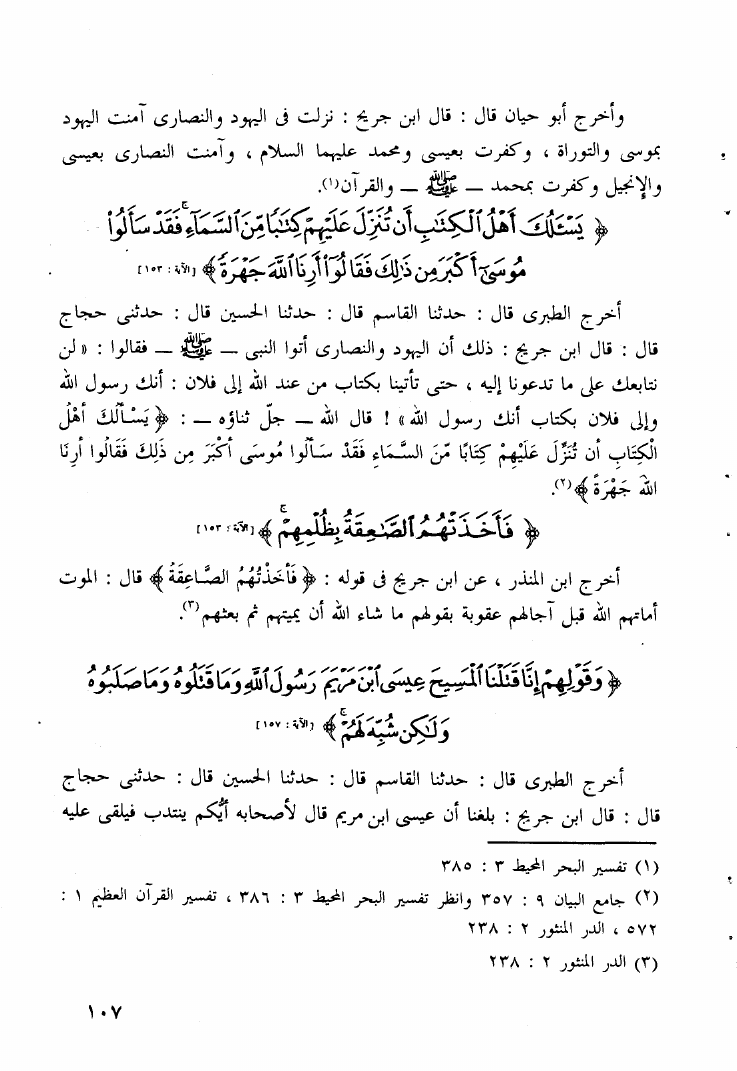 وأخرج أبو حيان قال : قال ابن جريج : نزلت فى اليهود والنصارى آمنت اليهود
بموسى والتوراة ، وكفرت بعيسى ومحمد عليهما السلام ، وآمنت النصارى بعيسى
والإنجيل وكفرت بمحمد — ﷺ — والقرآن(١).
﴿ يَسْـَٔلُكَ أَهْلُ ٱلْكِتَٰبِ أَن تُنَزِّلَ عَلَيْهِمْ كِتَٰبًا مِّنَ ٱلسَّمَآءِ ۚ فَقَدْ سَأَلُوا۟
مُوسَىٰٓ أَكْبَرَ مِن ذَٰلِكَ فَقَالُوٓا۟ أَرِنَا ٱللَّهَ جَهْرَةً ﴾ [الآية : ١٥٣]
أخرج الطبرى قال : حدثنا القاسم قال : حدثنا الحسين قال : حدثنى حجاج
قال : قال ابن جريج : ذلك أن اليهود والنصارى أتوا النبى — ﷺ — فقالوا : « لن
نتابعك على ما تدعونا إليه ، حتى تأتينا بكتاب من عند الله إلى فلان : أنك رسول الله
وإلى فلان بكتاب أنك رسول الله» ! قال الله — جلّ ثناؤه — : ﴿ يَسْأَلُكَ أَهْلُ
الْكِتَابِ أن تُنَزِّلَ عَلَيْهِمْ كِتَابًا مِّنَ السَّمَاءِ فَقَدْ سَأَلُوا مُوسَى أَكْبَرَ مِن ذَلِكَ فَقَالُوا أَرِنَا
الله جَهْرَةً ﴾(٢).
﴿ فَأَخَذَتْهُمُ ٱلصَّٰعِقَةُ بِظُلْمِهِمْ ۚ ﴾ [الآية : ١٥٣]
أخرج ابن المنذر ، عن ابن جريج فى قوله : ﴿ فَأَخَذَتْهُمُ الصَّاعِقَةُ ﴾ قال : الموت
أماتهم الله قبل آجالهم عقوبة بقولهم ما شاء الله أن يميتهم ثم بعثهم(٣).
﴿ وَقَوْلِهِمْ إِنَّا قَتَلْنَا ٱلْمَسِيحَ عِيسَى ٱبْنَ مَرْيَمَ رَسُولَ ٱللَّهِ وَمَا قَتَلُوهُ وَمَا صَلَبُوهُ
وَلَٰكِن شُبِّهَ لَهُمْ ۚ ﴾ [الآية : ١٥٧]
أخرج الطبرى قال : حدثنا القاسم قال : حدثنا الحسين قال : حدثنى حجاج
قال : قال ابن جريج : بلغنا أن عيسى ابن مريم قال لأصحابه أيُّكم ينتدب فيلقى عليه
(١) تفسير البحر المحيط ٣ : ٣٨٥
(٢) جامع البيان ٩ : ٣٥٧ وانظر تفسير البحر المحيط ٣ : ٣٨٦ ، تفسير القرآن العظيم ١ :
٥٧٢ ، الدر المنثور ٢ : ٢٣٨
(٣) الدر المنثور ٢ : ٢٣٨
١٠٧